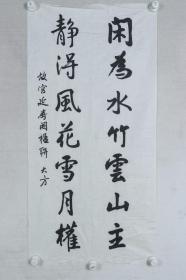 闲為水竹雲山主
静淂風花雪月權
故宫延春阁楹联 大方